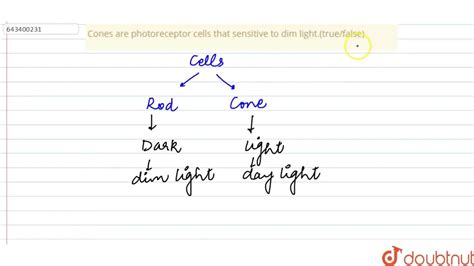 643400231
Cones are photoreceptor cells that sensitive to dim light.(true/false)
Cells
Rod Cone
Dark light
dim light day light
doubtnut